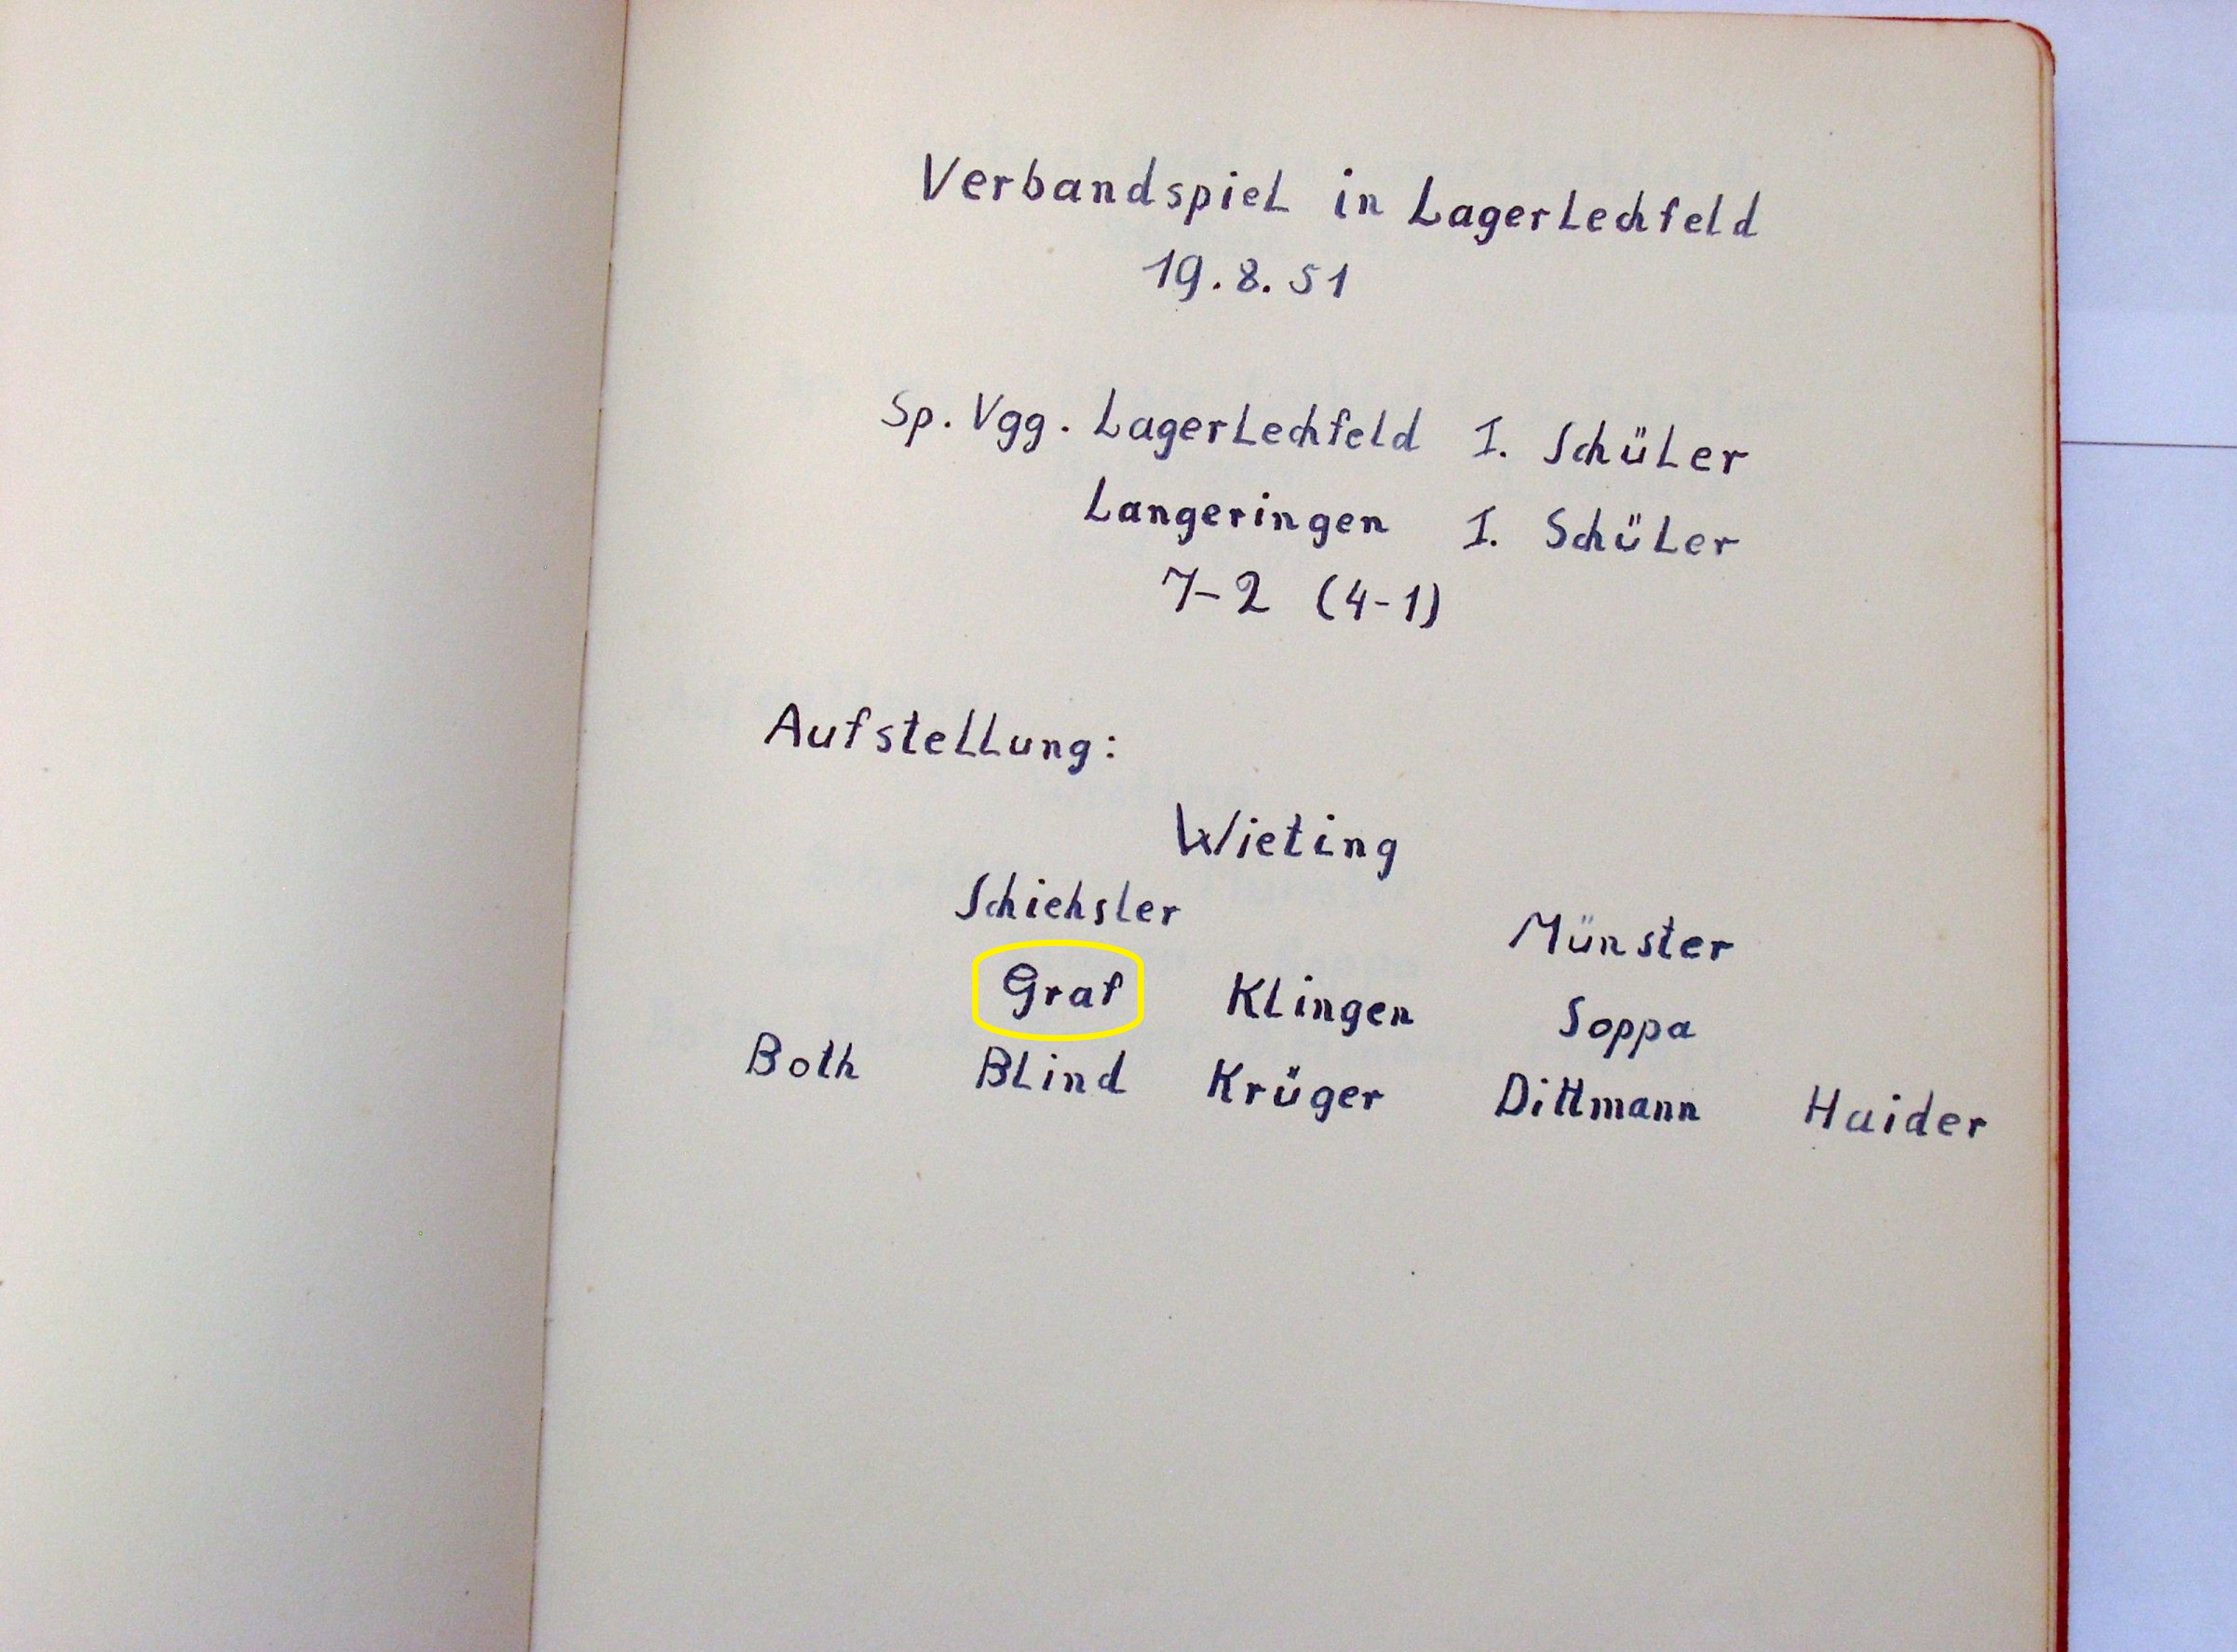 Verbandspiel in Lagerlechfeld
19.8.51
Sp. Vgg. Lagerlechfeld I. Schüler
Langeringen I. Schüler
7-2 (4-1)
Aufstellung:
Wieting
Schiehsler Münster
Graf Klingen Soppa
Both Blind Krüger Dittmann Haider